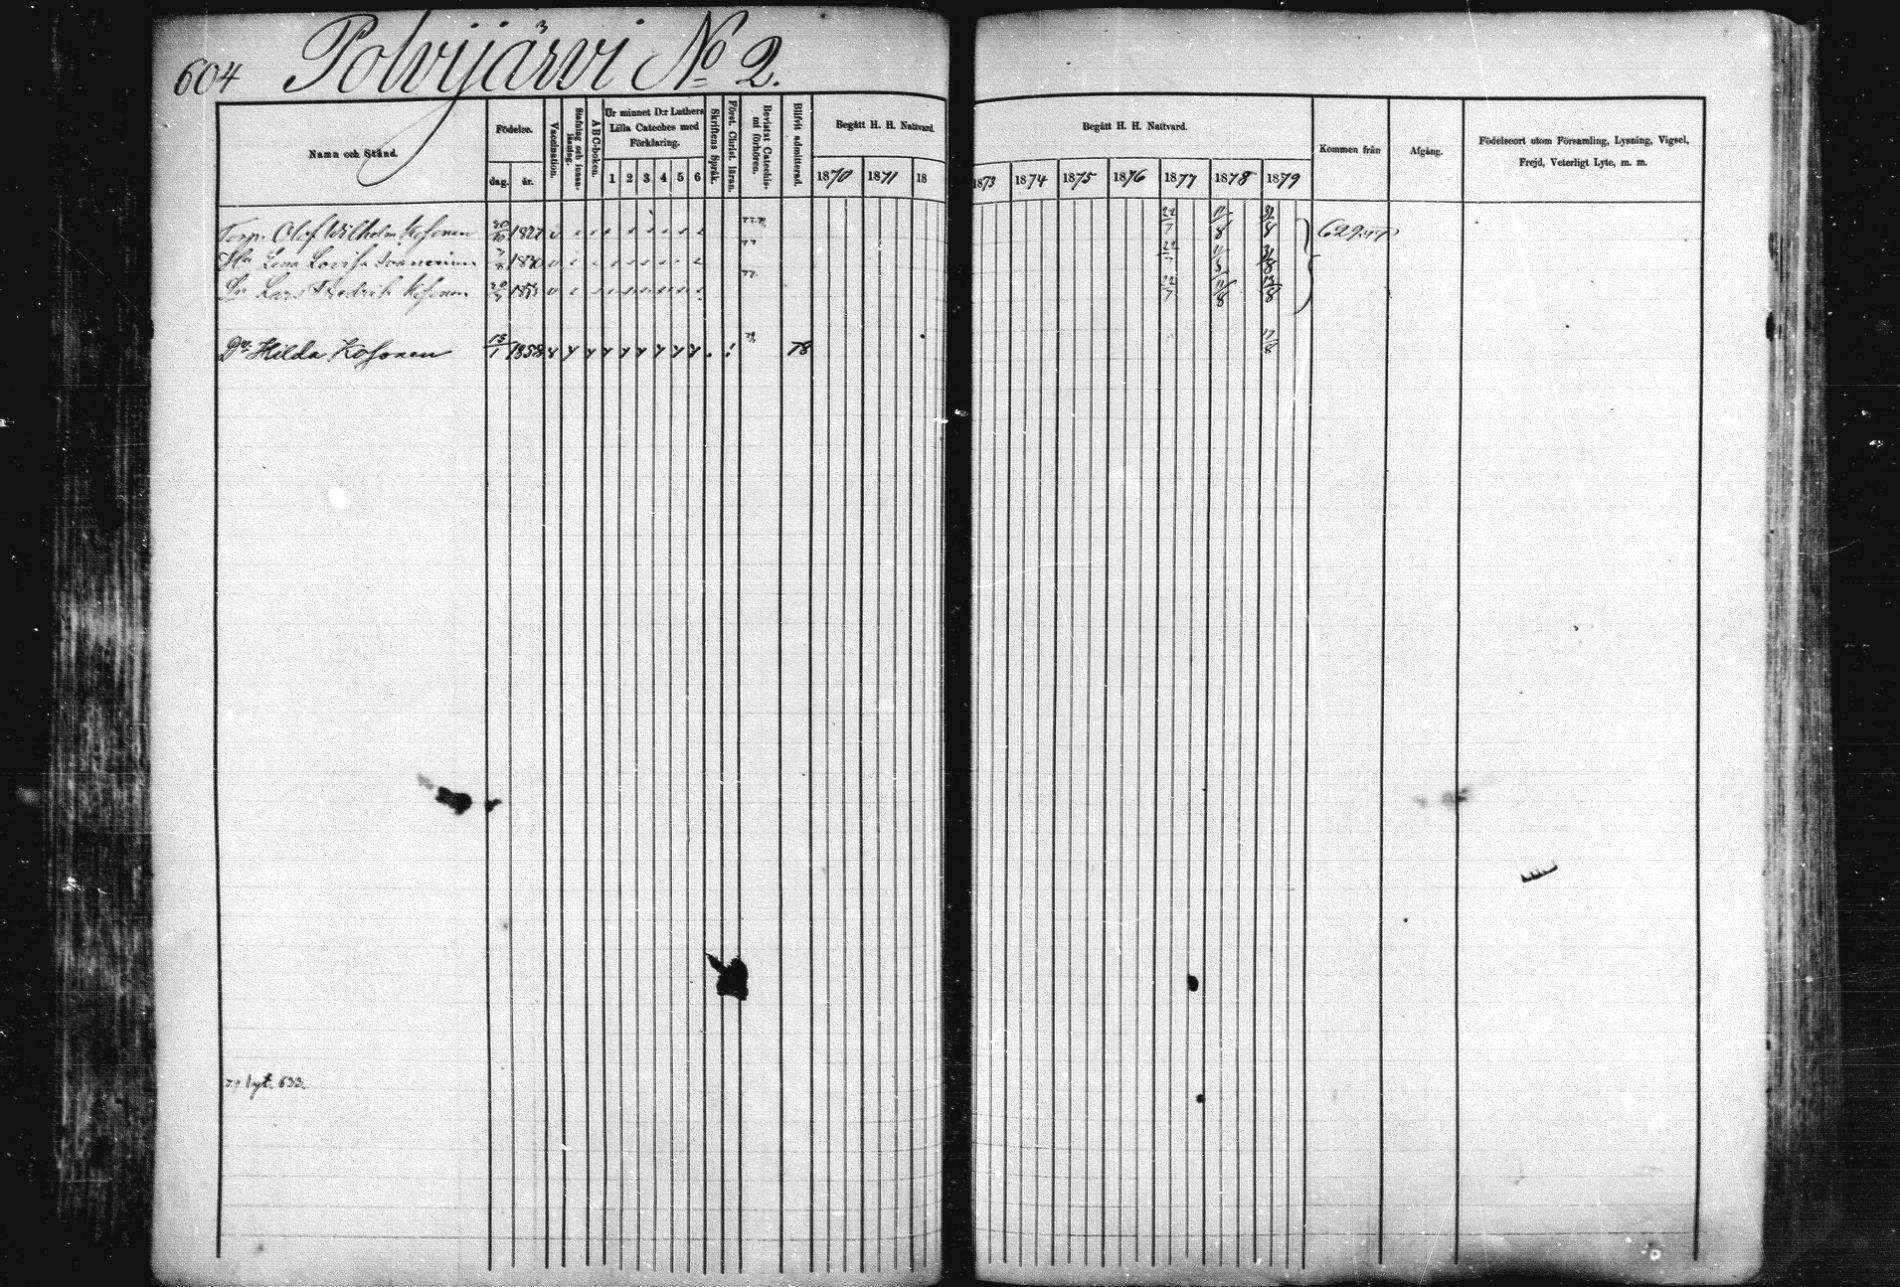 604 Polvijärvi No 2.
Namn och Stånd. Födelse. dag. år. Vaccination. Stafning och innanläsning. ABC-boken. Ur minnet D:r Luthers Lilla Cateches med Förklaring. 1 2 3 4 5 6 Skriftens Språk. Först. Christ. läran. Bevistat Catechismi förhören. Blifvit admitterad. Begått H. H. Nattvard. 1870 1871 18 Begått H. H. Nattvard. 1873 1874 1875 1876 1877 1878 1879 Kommen från Afgång. Födelseort utom Församling, Lysning, Vigsel, Frejd, Veterligt Lyte, m. m.
Torp. Olof Wilhelm Kosonen 20/10 1827 77.79. 22/7 11/8 31/8 629.77
Hu Lena Lovisa 1830 77 22/7 11/8 31/8
Sn Lars Fredrik Kosonen 77. 22/7 11/8 17/8
Dr Hilda Kosonen 13/1 1858 79. 78 17/8
79 lyt. 633.